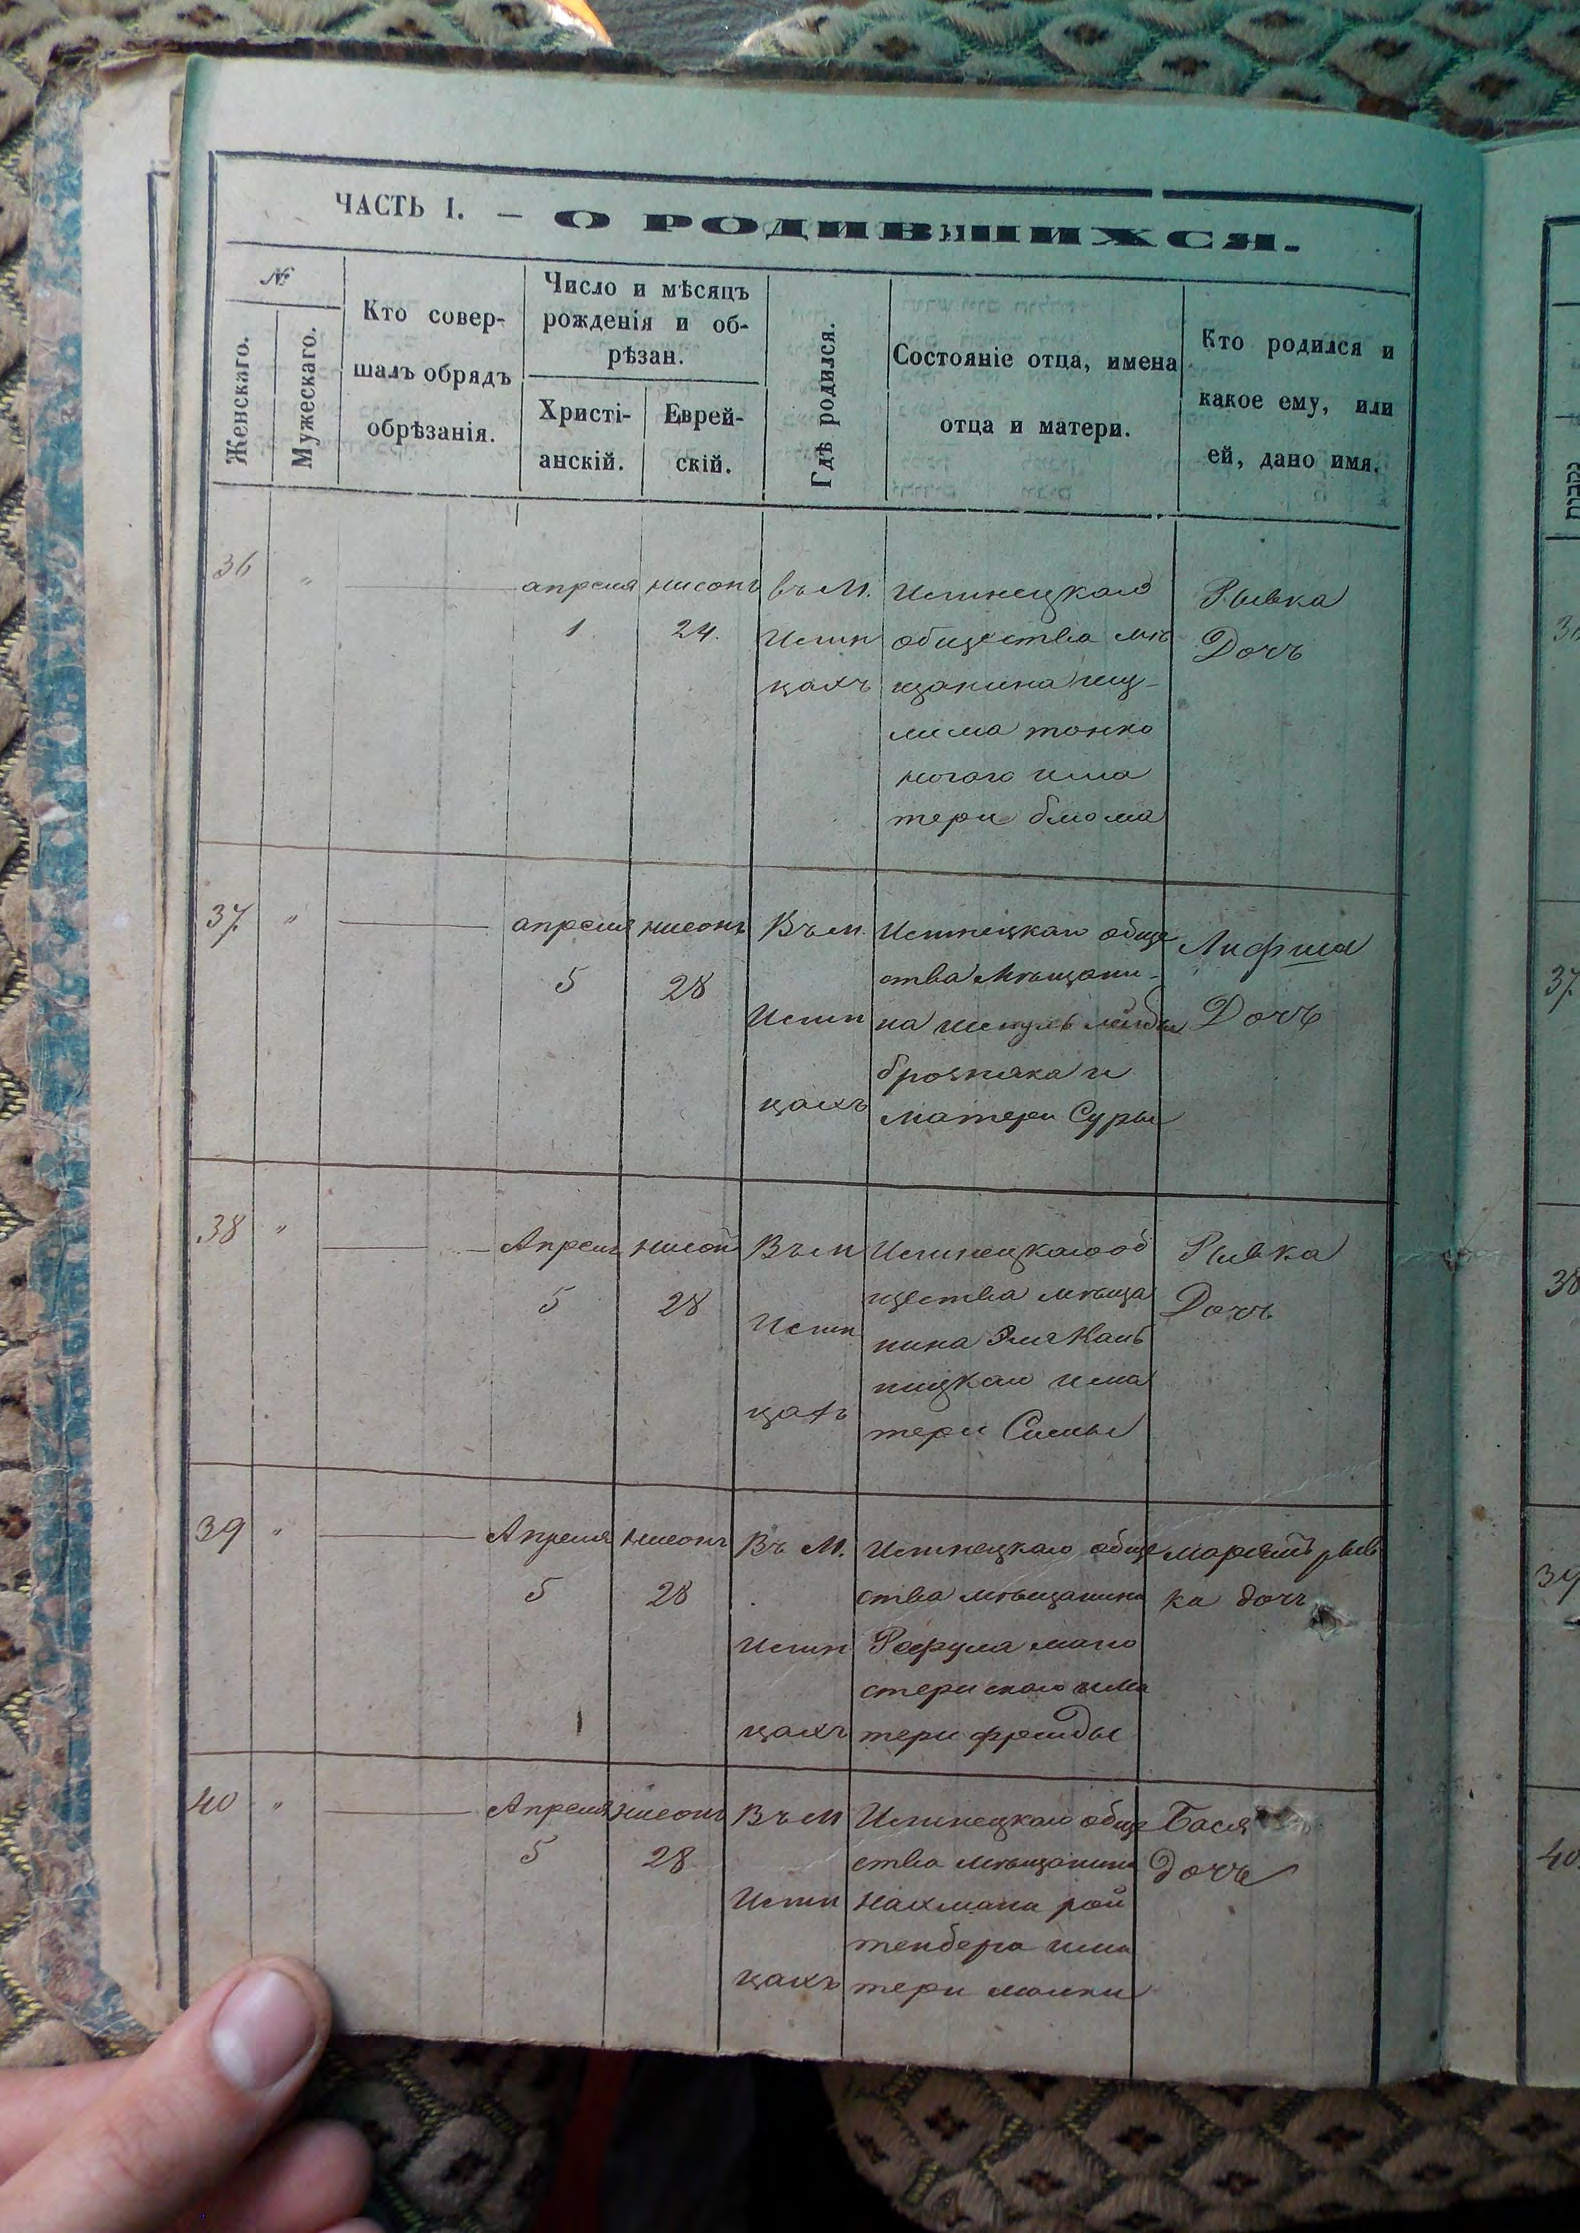 ЧАСТЬ I. — О РОДИВШИХСЯ.
№
Женскаго.
Мужескаго.
Кто совер-
шалъ обрядъ
обрѣзанія.
Число и мѣсяцъ
рожденія и об-
рѣзан.
Христі-
анскій.
Еврей-
скій.
Гдѣ родился.
Состояніе отца, имена
отца и матери.
Кто родился и
какое ему, или
ей, дано имя.
36 " апреля 1 нисонъ 24.
въ М.
Илин
цахъ
Илинецкаго
общества мѣ
щанина
лима тонко
ногаго и ма
тери блюма
Рывка
Дочъ
37. " апреля 5 нисонъ 28
Въ м.
Илин
цахъ
Илинецкаго обще
ства Мѣщани-
на
брозняка и
матери Суры
Лифша
Дочъ
38 " Апреля 5 нисон 28
Въ м
Илин
цахъ
Илинецкаго об
щества мѣща
нина
ницкаго и ма
тери Симы
Рывка
Дочъ
39 " Апреля 5 нисонъ 28
Въ М.
Илин
цахъ
Илинецкаго обще
ства мѣщанина
Рефула мано
стерискаго и ма
тери фрейды
рыв
ка дочъ
40 " Апреля 5 нисонъ 28
Въ М
Илин
цахъ
Илинецкаго обще
ства мѣщанина
Нахмана рой
тенберга и ма
тери малки
Бася
дочъ
37.
38
39
40